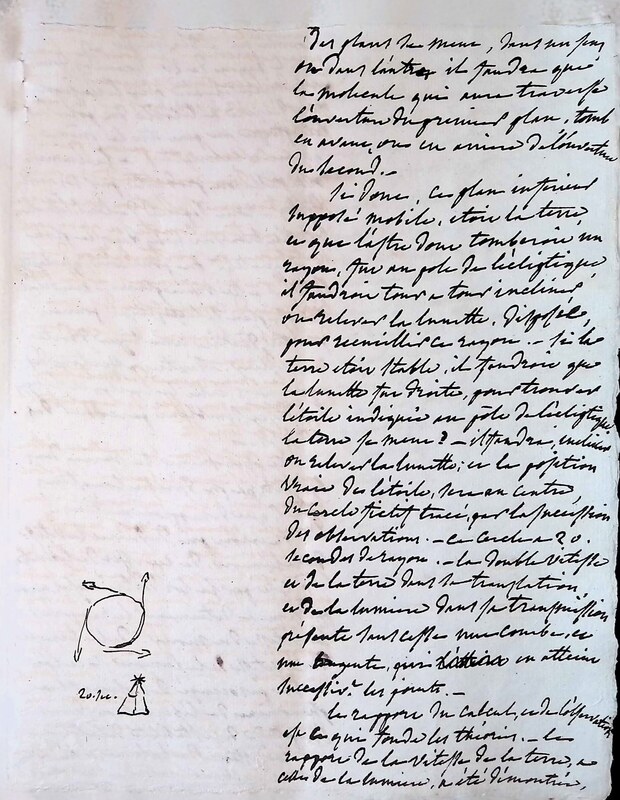 des plans se meut, dans un sens
ou dans l'autre il faudra que
la molecule qui aura traversé
l'ouverture du premier plan, tomb
en avant, ou en arriere de l'ouverture
du second. -
Si donc, ce plan inferieur
supposé mobile, etoit la terre
et que l'astre dont tomberoit un
rayon, fut au pole de l'ecliptique
il faudroit tour a tour incliner
ou relever la lunette, disposée,
pour recueillir ce rayon. - Si la
terre etoit stable, il faudroit que
la lunette fut droite, pour trouver
l'étoile indiquée au pôle de l'ecliptique
la terre se meut? - il faudra, incliner
ou relever la lunette; et la position
vraie de l'étoile, sera au centre,
du cercle fictif tracé, par la succession
des observations. - ce cercle a 20.
secondes de rayon. - la double vitesse
et de la terre dans sa translation,
et de la lumiere dans sa transmission
présente sans cesse une courbe, et
une tangente, qui en atteint
successivt. les points. -
le rapport du calcul, et de l'observation
est ce qui fonde les theories. - le
rapport de la vitesse de la terre, a
celle de la lumiere, a été démontré,
20. se.